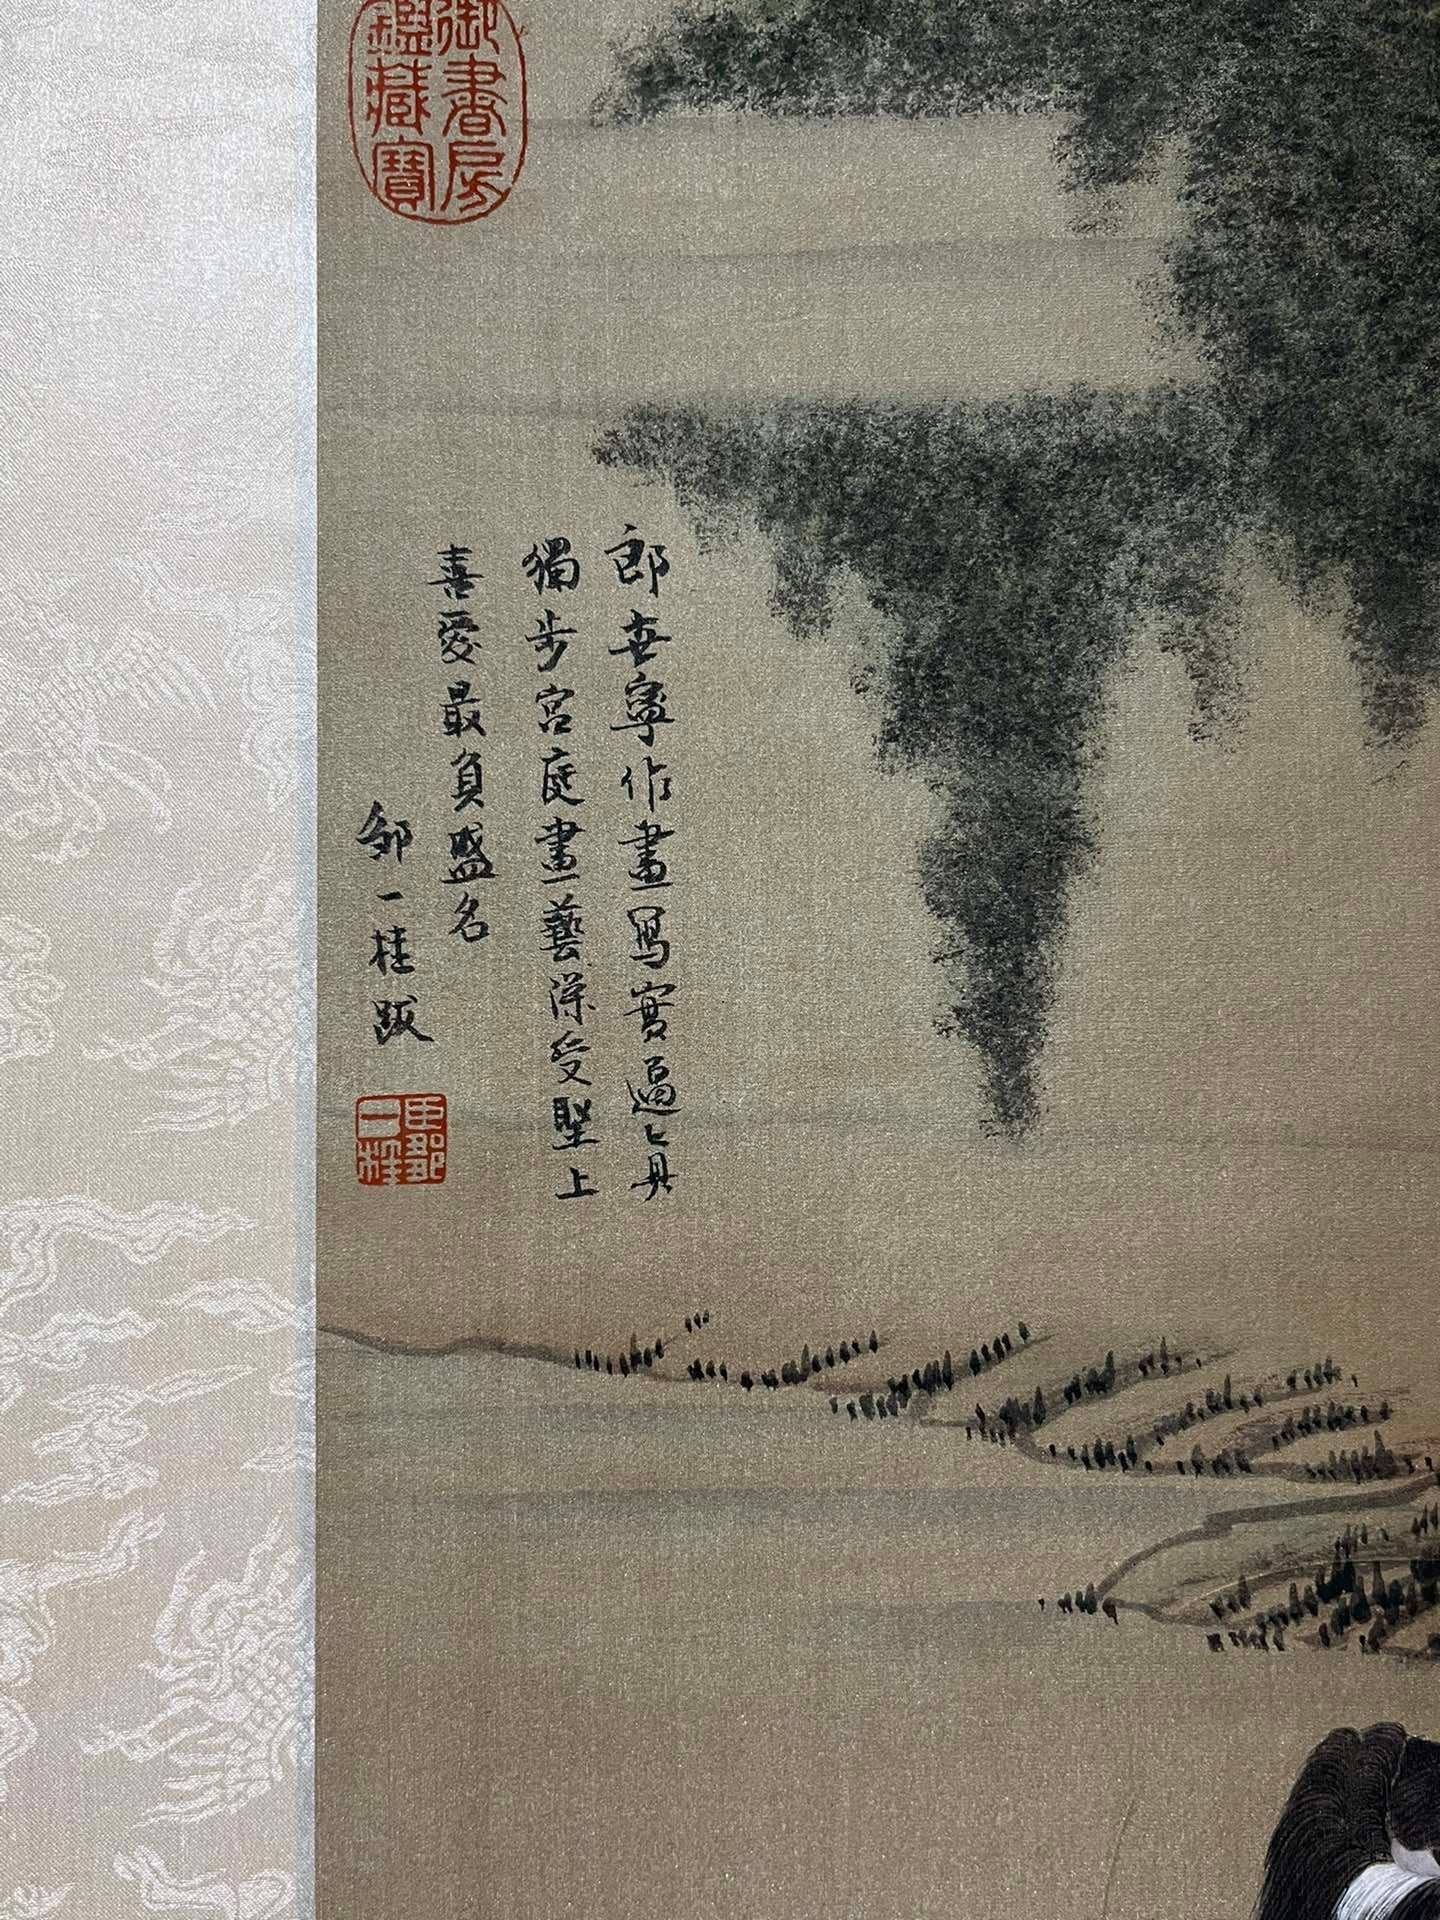 御書房
鑑藏寶
郎世寧作畫寫實逼真
獨步宮庭畫藝深受聖上
喜愛最負盛名
鄒一桂跋
臣鄒
一桂